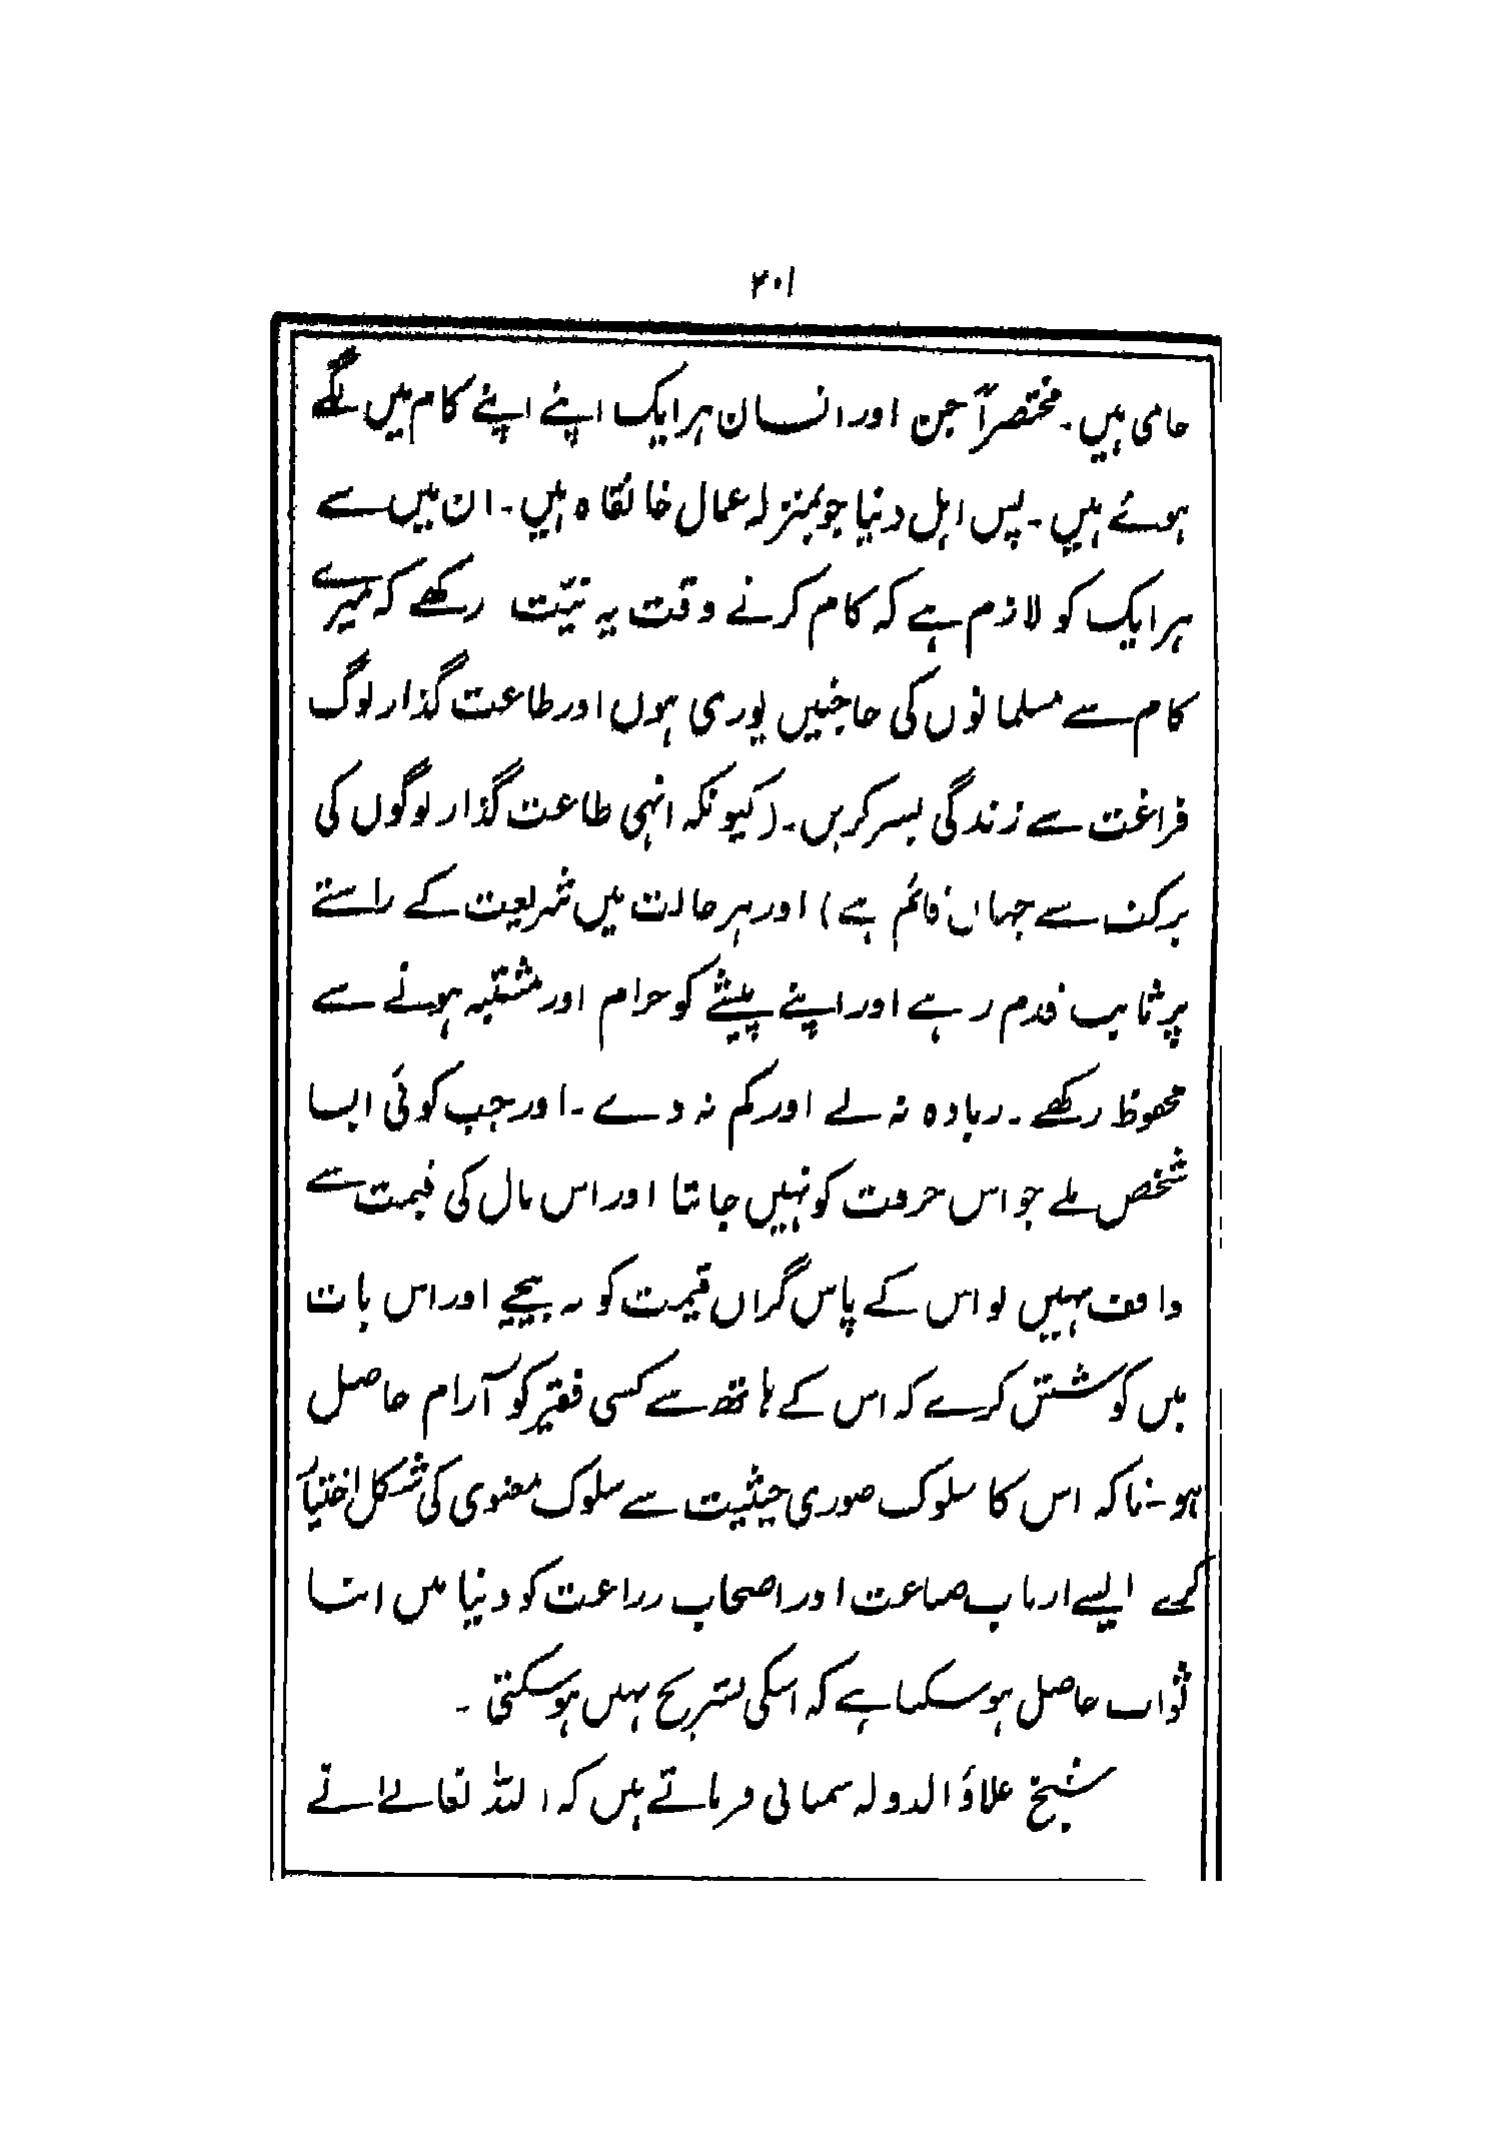 ۲۰۱
حامی ہیں۔ مختصراً جن اور انسان ہر ایک اپنے اپنے کام میں لگے
ہوئے ہیں۔ پس اہل دنیا جو بمنزلہ عمال خانقاہ ہیں۔ ان میں سے
ہر ایک کو لازم ہے کہ کام کرنے وقت یہ نیّت رکھے کہ میرے
کام سے مسلمانوں کی حاجتیں پوری ہوں اور طاعت گذار لوگ
فراغت سے زندگی بسر کریں۔ (کیونکہ انہی طاعت گذار لوگوں کی
برکت سے جہان قائم ہے) اور ہر حالت میں شریعت کے راستے
پر ثابت قدم رہے اور اپنے پیشے کو حرام اور مشتبہ ہونے سے
محفوظ رکھے۔ زیادہ نہ لے اور کم نہ دے۔ اور جب کوئی ایسا
شخص ملے جو اس حرفت کو نہیں جانتا اور اس مال کی قیمت سے
واقف نہیں تو اس کے پاس گراں قیمت کو نہ بیچے اور اس بات
میں کوشش کرے کہ اس کے ہاتھ سے کسی فقیر کو آرام حاصل
ہو۔ تاکہ اس کا سلوک صوری حیثیت سے سلوک معنوی کی شکل اختیار
کرے ایسے ارباب صناعت اور اصحاب زراعت کو دنیا میں اتنا
ثواب حاصل ہو سکتا ہے کہ اسکی تشریح نہیں ہو سکتی۔
شیخ علاؤ الدولہ سمنانی فرماتے ہیں کہ اللہ تعالےٰ نے